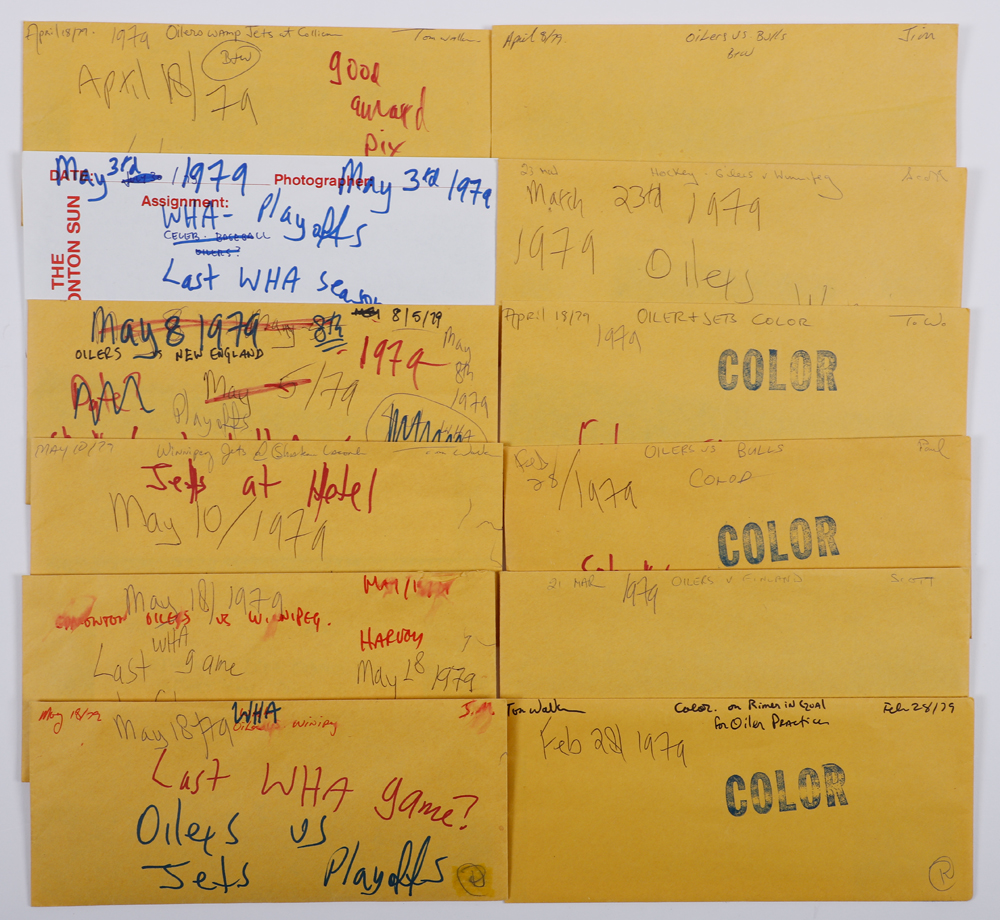 April 18/79. 1979 Oilers wamp Jets at Tom
B+W
April 18/79
good
award
pix
DATE:
May 3rd 1979
Photographer
May 3rd 1979
Assignment:
WHA- Playoffs
CELEB. BASEBALL
OILERS?
Last WHA season
THE
ONTON SUN
May 8 1979 May 8th 8/5/79
OILERS vs NEW ENGLAND
1979
May
8th
1979
WHA
May 5/79
Playoffs
MAY 10/79 Winnipeg Jets
Jets at Hotel
May 10/1979
May 18/1979
EDMONTON OILERS vs WINNIPEG.
WHA
HARVOY
Last game
May 18
1979
May 18/79 WHA J.M.
May 18 79
Last WHA game?
Oilers vs
Jets Playoffs
April 8/79. Oilers vs. Bulls Jim
B+W
23 MAR Hockey - Oilers v Winnipeg
March 23rd 1979
1979 Oilers
April 18/79 OILER + JETS COLOR To. Wa.
1979
COLOR
Feb 28/1979 OILERS VS BULLS Paul
COLOR
COLOR
21 MAR 1979 OILERS v FINLAND SCOTT
Tom Walker Color. on Rimer in Equal Feb 28/79
for Oiler Practice
Feb 28 1979
COLOR
R